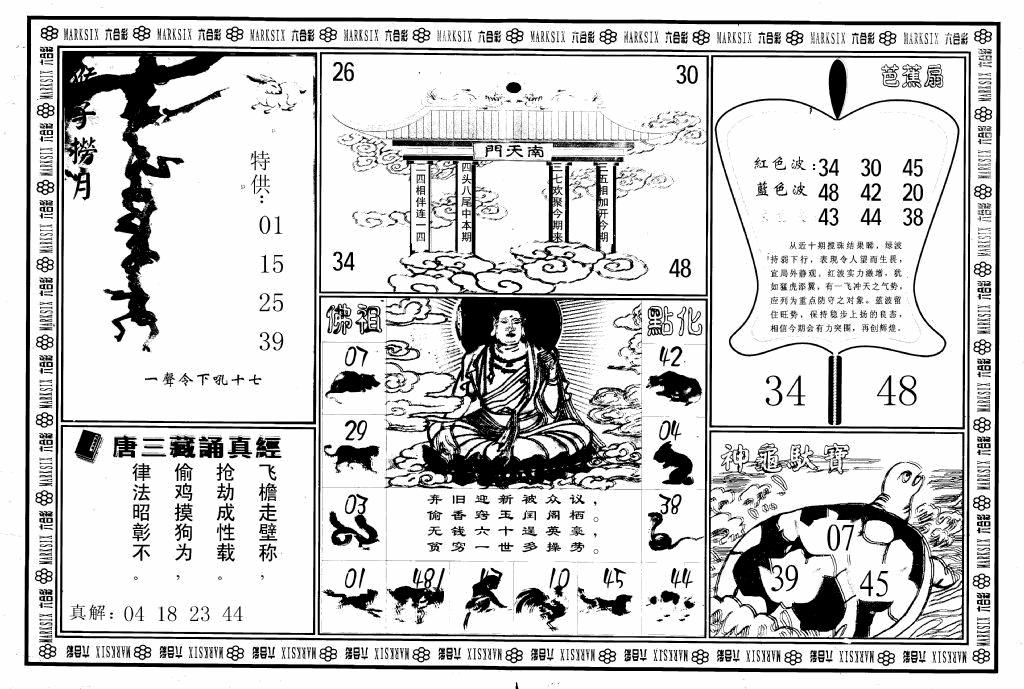 MARKSIX 六合彩 MARKSIX 六合彩 MARKSIX 六合彩 MARKSIX 六合彩 MARKSIX 六合彩 MARKSIX 六合彩 MARKSIX 六合彩 MARKSIX 六合彩 MARKSIX 六合彩 MARKSIX 六合彩
猴子撈月
特供:
01
15
25
39
一聲令下吼十七
26
30
南天門
一四相伴连一四
四头八尾中本期
三七欢聚今期来
二五相加开今期
34
48
芭蕉扇
紅色波:34 30 45
藍色波 48 42 20
43 44 38
从近十期搅珠结果睇,绿波
持弱下行,表現令人望而生畏,
宜局外静观。红波实力激增,犹
如猛虎添翼,有一飞冲天之气势,
应列为重点防守之对象。蓝波留
住旺势,保持稳步上扬的良态,
相信今期会有力突围,再创辉煌。
34
48
佛祖
點化
07
29
03
42
04
38
弃旧迎新被众议,
偷香窍玉闰阁栖。
无钱六十逞英豪,
贫穷一世多操劳。
01
10
45
44
唐三藏誦真經
飞檐走壁称,
抢劫成性载。
偷鸡摸狗为,
律法昭彰不。
真解:04 18 23 44
神龜馱寶
07
39
45